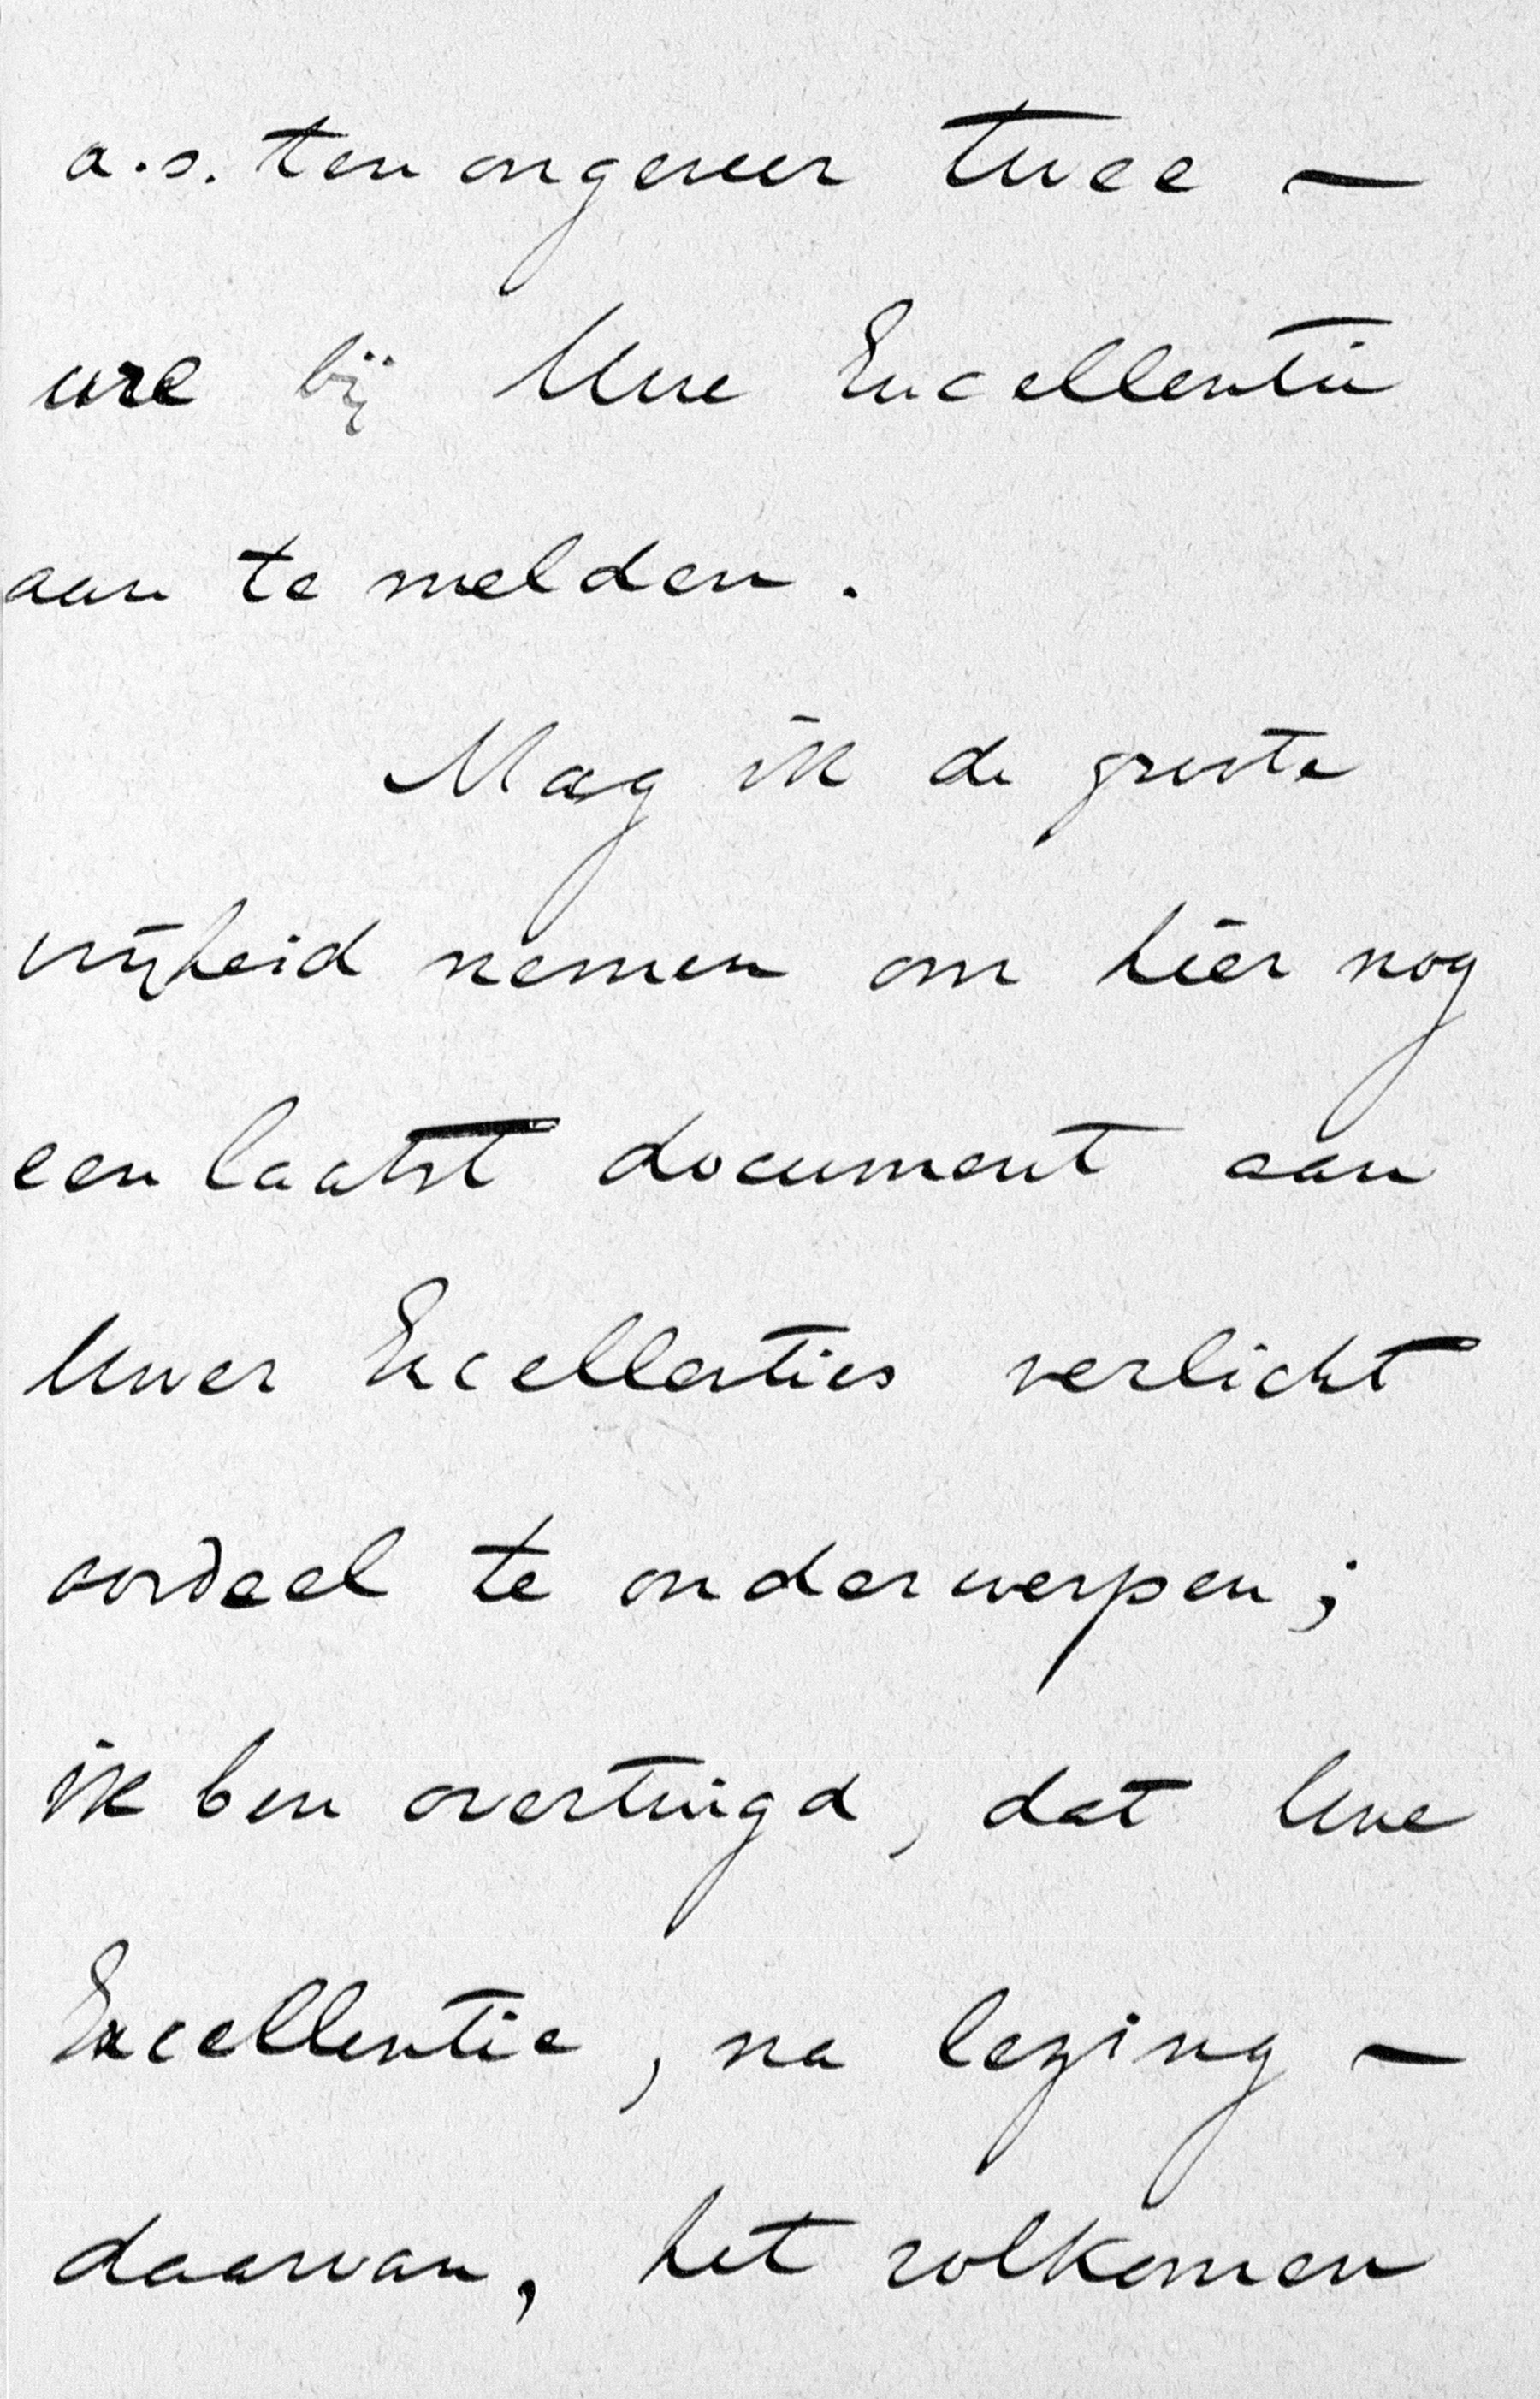 a.s. ten ongeveer twee —
ure bij Uwe Excellentie
aan te melden.
Mag ik de groote
vrijheid nemen om hier nog
een laatst document aan
Uwer Excellenties verlicht
oordeel te onderwerpen;
ik ben overtuigd, dat Uwe
Excellentie, na lezing —
daarvan, het volkomen